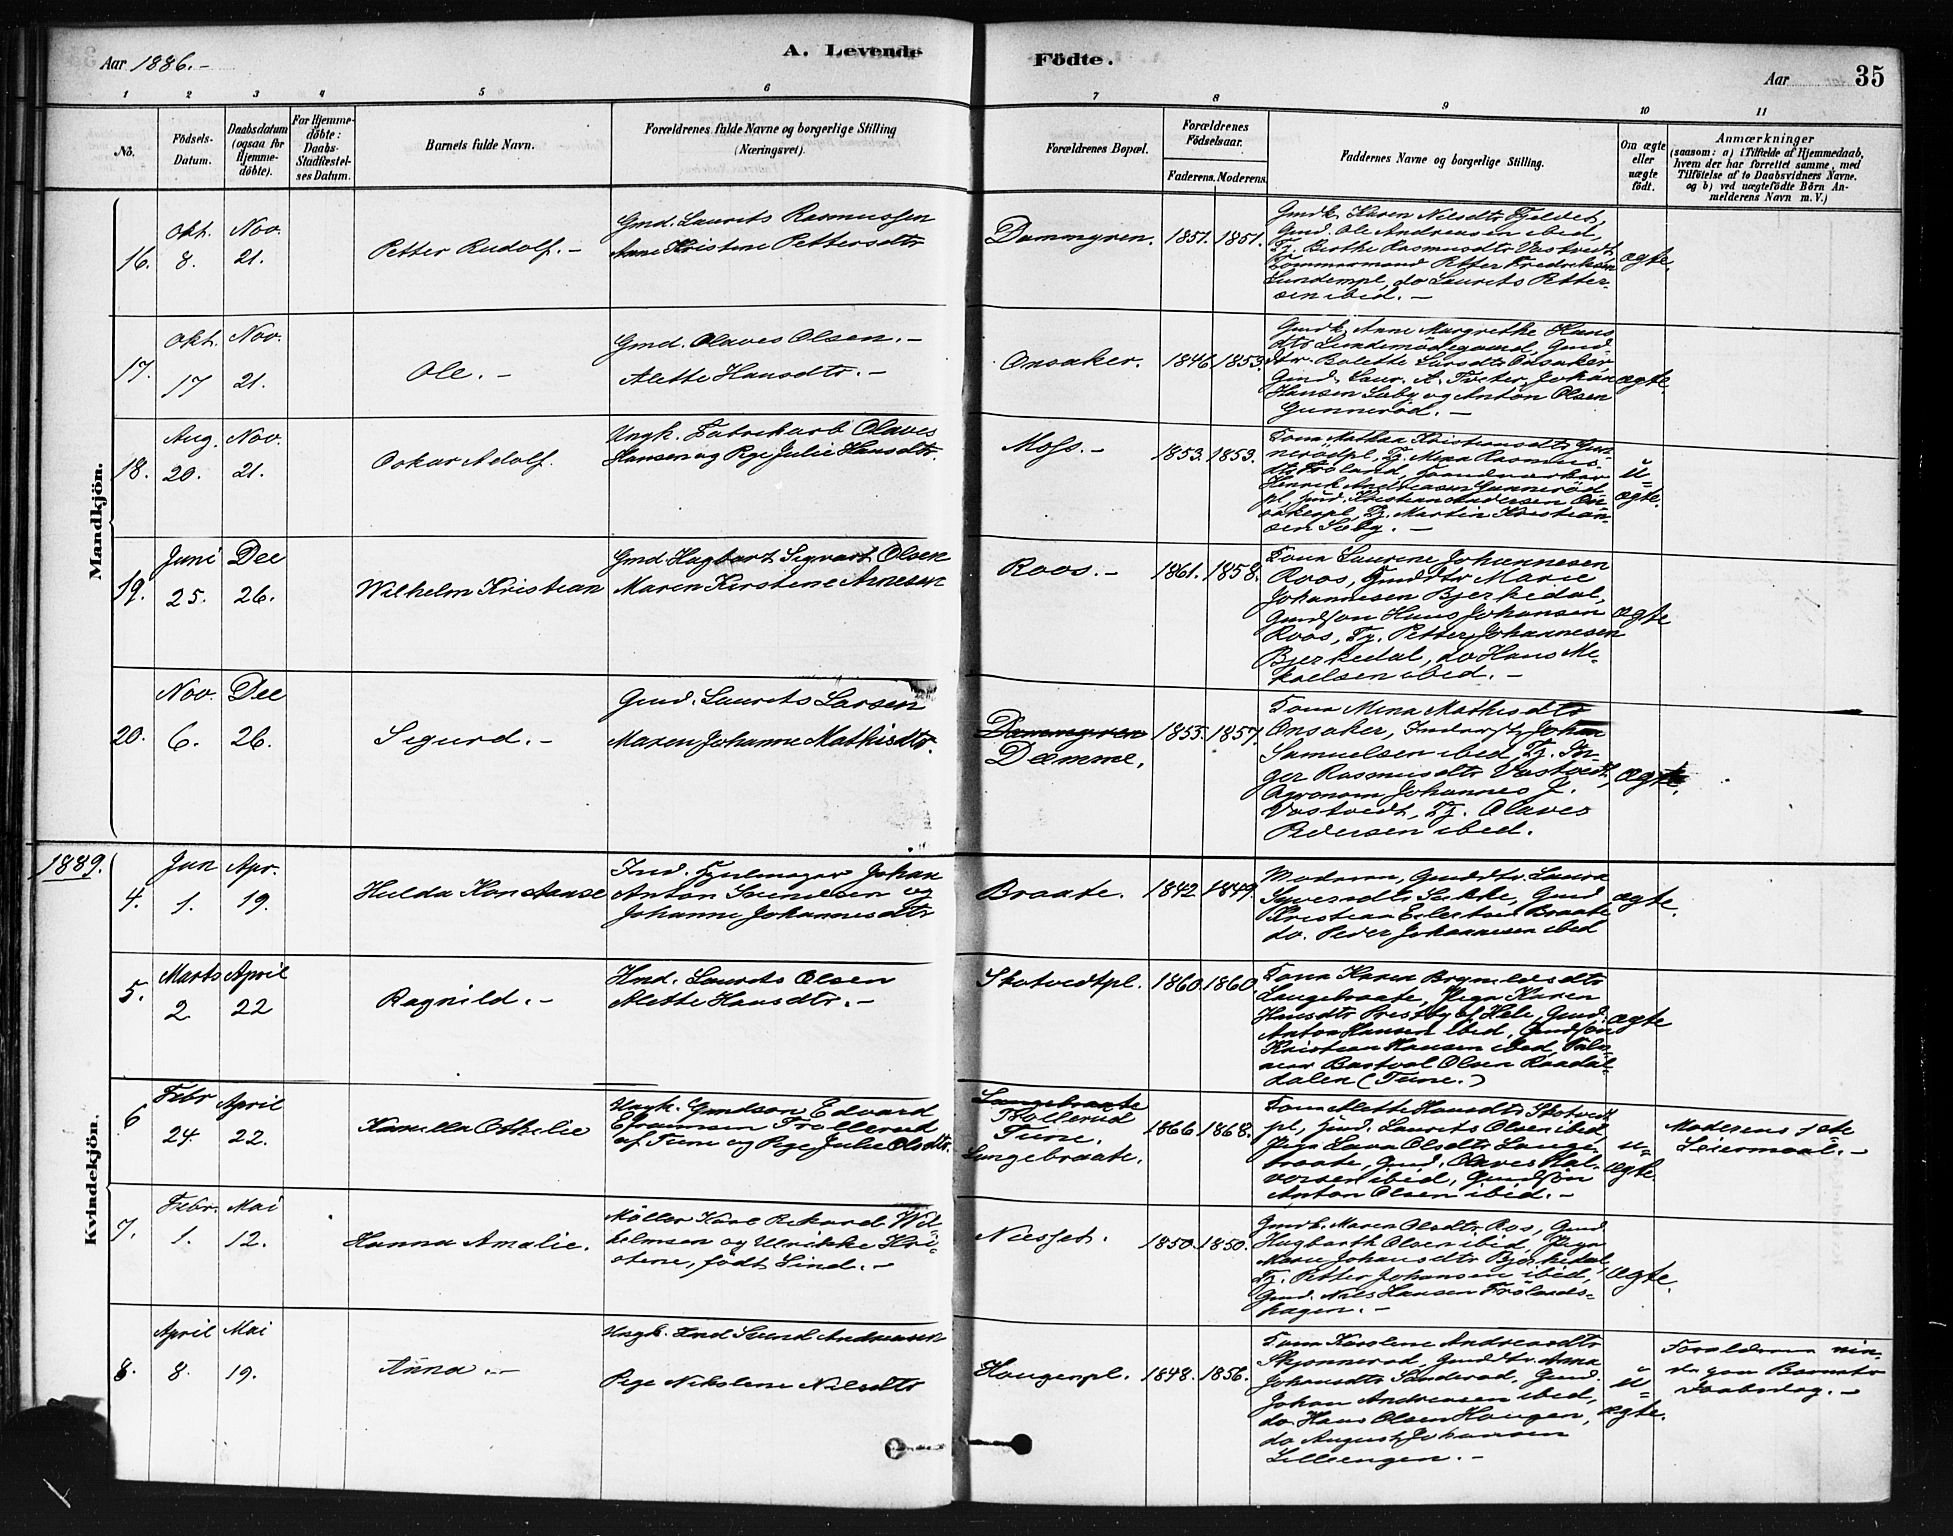 Aar 1886.-
A. Levende
Födte.
Aar
35
1 2 3 4 5 6 7 8 9 10 11
No.
Födsels-
Datum.
Daabsdatum
(ogsaa for
Hjemme-
döbte).
For Hjemme-
döbte:
Daabs-
Stadfæstel-
ses Datum.
Barnets fulde Navn.
Forældrenes fulde Navne og borgerlige Stilling
(Næringsvei).
Forældrenes Bopæl.
Forældrenes
Födselsaar.
Faderens. Moderens.
Faddernes Navne og borgerlige Stilling.
Om ægte
eller
uægte
födt.
Anmærkninger
(saasom: a) i Tilfælde af Hjemmedaab,
hvem der har forrettet samme, med
Tilföielse af to Daabsvidners Navne.
og b) ved uægtefödte Börn An-
melderens Navn m. V.)
Mandkjön.
16.
Okt.
8.
Nov.
21.
Petter Rudolf. -
Gmd. Laurits Rasmussen
Anne Kristine Pettersdtr
Dammyren.
1851. 1851.
Gmdk. Karen Nilsdtr Fjeldet,
Gmd. Ole Andreasen ibid,
Tj. Birthe Rasmusdtr Vastvedt
Tömmermand Petter Fredriksen
Lundempl, do Laurits Petter-
sen ibid. -
ægte.
17.
Okt.
17
Nov.
21.
Ole. -
Gmd. Olaves Olsen. -
Alette Hansdtr. -
Onsaker.
1846 1853.
Gmdk. Anne Margrethe Hans
dtr Gmd
dtr. Bolette Larsdtr Onsaker
Gmd. Laur. A. Johan
Hansen Sæby og Anton Olsen
Gunneröd. -
ægte.
18.
Aug.
20.
Nov.
21.
Oskar Adolf.
Ungk. Fabrikarb Olaves
Hansen og Pige Julie Hansdtr.
Moss. -
1853. 1859.
Kona Mathea Kristiansdtr Gun
nerödpl, Tj. Mina Rasmus
dtr Fröland,
Henrik Andreasen Gunneröd
pl, Gmd. Kristian Andersen On
sakerpl, Tj. Martin Kristian-
sen Sæby. -
u=
ægte.
19.
Juni
25.
Dec
26.
Wilhelm Kristian
Gmd Hagbart Sigvart Olsen
Maren Kirstine Arnesen
Roos. -
1861. 1858.
Kona Laurine Johannesen
Roos, Gmddtr Marie
Johannesen Bjerkedal,
Gmdsön Hans Johansen
Roos, Tj. Petter Johannesen
Bjerkedal, do Hans Mi-
kaelsen ibid. -
ægte
20.
Nov.
6.
Dec
26.
Sigurd. -
Gmd. Laurits Larsen
Maren Johanne Mathisdtr.
Dammyren
Damme.
1855. 1857.
Kona Mina Mathisdtr
Onsaker, Johan
Samuelsen ibid, Tj. In-
ger Rasmusdtr Vastvedt,
Agronom Johannes J.
Vastvedt, Tj. Olaves
Pedersen ibid.
ægte.
1889.
Kvindekjön.
4.
Jan
1.
Apr.
19.
Hulda Konstanse
Ind. Hjulmager Johan
Anton Svendsen og
Johanne Johannesdtr
Braate.
1842 1849.
Moderen, Gmddtr. Laura
Syversdtr Sække, Gmd
Kristian Eilertsen Braate
do. Peder Johannesen ibid
ægte.
5.
Marts
2
April
22
Ragnild. -
Hmd. Laurits Olsen
Alette Hansdtr. -
Skotvedtpl.
1860 1860.
Kona Karen Brynildsdtr
Langebraate, Piga Karen
Hansdtr Prestby af Hele, Gmd.
Anton Hansen ibid, Gmdsön
Kristian Hansen ibid,
Bartvol Olsen Raadal
dalen (Tune.)
ægte
6
Febr
24.
April
22.
Kamilla Othilie
Ungk. Gmdsøn Edvard
Efraimsen Trollerud
af Tune og Pige Julie Olsdtr.
Langebraate
Trollerud
Tune.
Langebraate.
1866 1868.
Kona Alette Hansdtr Skotvedt
pl, Gmd. Laurits Olsen ibid
Piga Lava Olsdtr Lange
braate, Gmd. Olaves Hal-
vorsen ibid, Gmdsön
Anton Olsen ibid. -
u=
ægte.
Moderens 1ste
Leiermaal. -
7.
Febr.
1.
Mai
12.
Hanna Amalie.
Möller Karl Rikard Wil-
helmsen og Ulrikke Kri-
stine, födt Lind. -
Næsset.
1850. 1850.
Gmdk. Maren Olsdtr Ros, Gmd
Hagbarth Olsen ibid, Piga
Maren Johansdtr Bjerkedal,
Tj. Petter Johansen ibid,
Gmd. Nils Hansen Frölands-
hagen. -
ægte.
8.
April
8.
Mai
19.
Anna. -
Ungk. Ind Svend Andreasen
Pige Nikoline Nilsdtr
Haugenpl.
1848. 1856.
Kona Karoline Andreasdtr
Skjönneröd, Gmddtr. Anna
Johansdtr Sanderød, Gmd.
Johan Andreasen ibid,
do. Hans Olsen Haugen,
do August Johansen
Lilleengen. -
u=
ægte.
Forældrene vi-
paa Barnets
Daabsdag. -